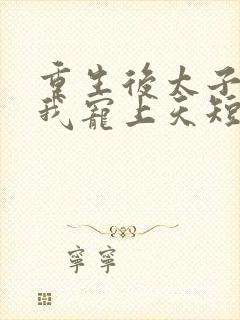 重生後太子
我寵上天短
寧寧